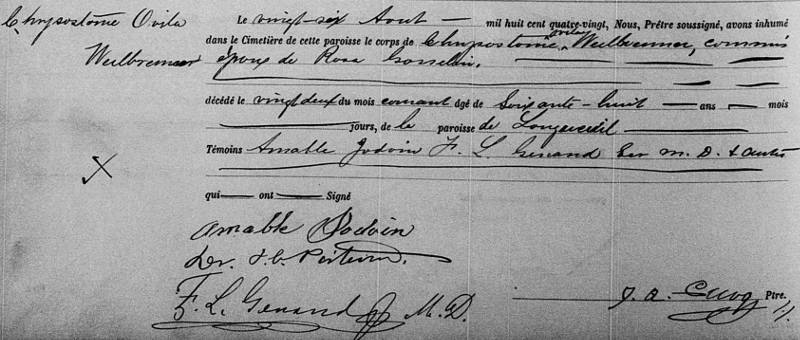 Chrysostôme Ovila
Weilbrenner
Le vingt-six Aout — mil huit cent quatre-vingt, Nous, Prêtre soussigné, avons inhumé
dans le Cimetière de cette paroisse le corps de Chrysostôme Ovila Weilbrenner, commis
époux de Rosa Gosselin.
décédé le vingt deux du mois courant âgé de Soixante-huit — ans — mois
jours, de la paroisse de Longueuil
Témoins Amable Jodoin F. L. Genand Ecr M. D. & autres
qui — ont — Signé
Amable Jodoin
Dr. J. B.
F. L. Genand M. D.
J. A. Cuoq Ptre.